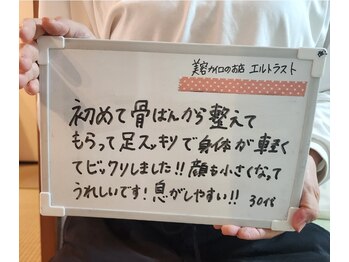 美容カイロのお店 エルトラスト
初めて骨ばんから整えて
もらって足スッキリで身体が軽く
てビックリしました!!顔も小さくなって
うれしいです!息がしやすい!!
30代